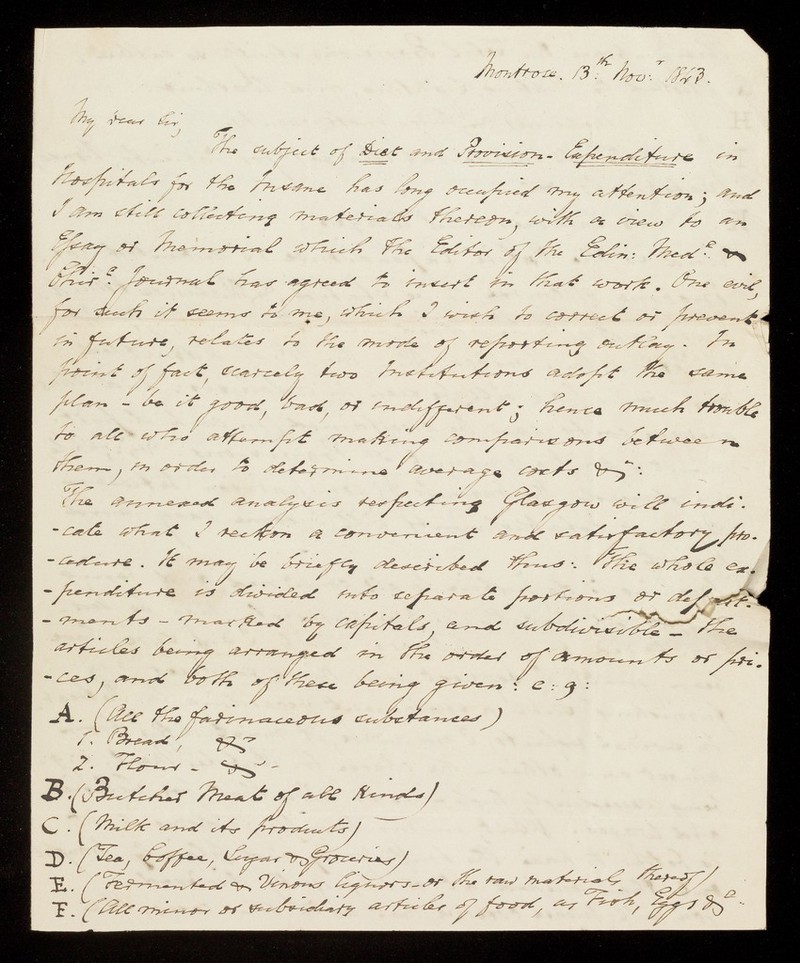 Montrose. 13th Novr. 1843.
My dear Sir,
The subject of Diet and Provision-Expenditure in
Hospitals for the Insane has long occupied my attention; and
I am still collecting materials thereon, with a view to an
Essay or Memorial which the Editor of the Edin: Medl. &
Chirl. Journal has agreed to insert in that work. One evil,
for such it seems to me, which I wish to correct or prevent
in future, relates to the mode of reporting outlay. In
point of fact, scarcely two Institutions adopt the same
plan - be it good, bad, or indifferent; hence much trouble
to all who attempt making comparisons between
them, in order to determine average costs &c:
The annexed analysis respecting Glasgow will indi-
-cate what I reckon a convenient and satisfactory pro-
-cedure. It may be briefly described thus: The whole ex-
-penditure is divided into separate portions or depart-
-ments - marked by capitals, and subdivisible - The
articles being arranged in the order of amounts or pri-
-ces, and both of these being given: e: g:
A. (All the farinaceous substances)
1. Bread, &c
2. Flour - &c -
B. (Butcher Meat of all Kinds)
C. (Milk and its products)
D. (Tea, Coffee, Sugar & Groceries)
E. (Fermented & Vinous liquors - or the raw materials thereof)
F. (All minor or subsidiary articles of food, as Fish, Eggs &c -